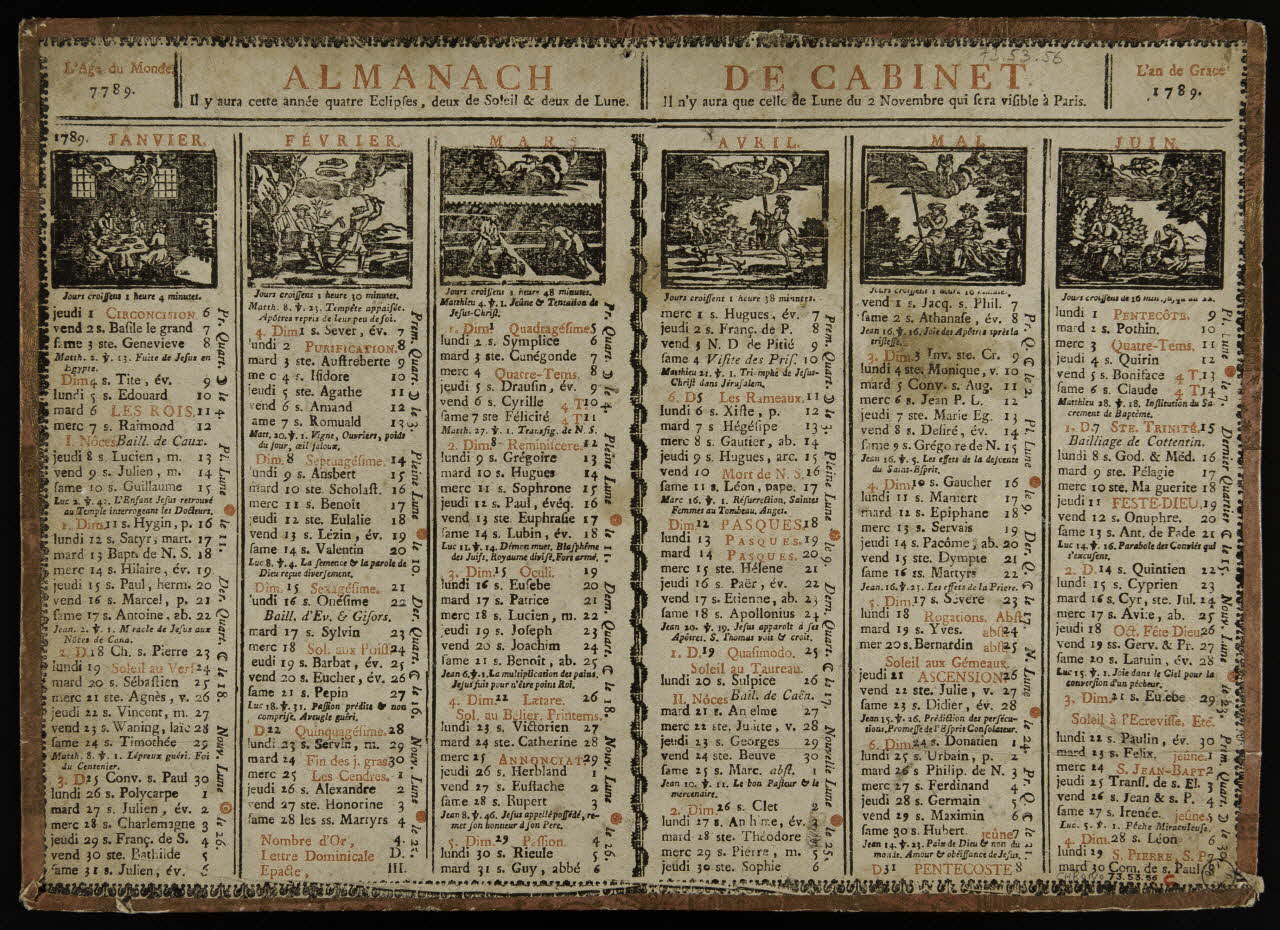 L'Age du Monde
7789.
ALMANACH
Il y aura cette année quatre Eclipses, deux de Soleil & deux de Lune.
DE CABINET.
Il n'y aura que celle de Lune du 2 Novembre qui sera visible à Paris.
L'an de Grace
1789.
73.53.56
1789. JANVIER.
Jours croissent 1 heure 4 minutes.
jeudi 1 CIRCONCISION 6
vend 2 s. Basile le grand 7
same 3 ste. Genevieve 8
Matth. 2. ℣. 13. Fuite de Jesus en
Egypte.
Dim 4 s. Tite, év. 9
lundi 5 s. Edouard 10
mard 6 LES ROIS. 11
merc 7 s. Raimond 12
I. Nôces Baill. de Caux.
jeudi 8 s. Lucien, m. 13
vend 9 s. Julien, m. 14
same 10 s. Guillaume 15
Luc 2. ℣. 42. L'Enfant Jesus retrouvé
au Temple interrogeant les Docteurs.
1. Dim. 11 s. Hygin, p. 16
lundi 12 s. Satyr, mart. 17
mard 13 Bapt. de N. S. 18
merc 14 s. Hilaire, év. 19
jeudi 15 s. Paul, herm. 20
vend 16 s. Marcel, p. 21
same 17 s. Antoine, ab. 22
Jean. 2. ℣. 1. Miracle de Jesus aux
Nôces de Cana.
2. D. 18 Ch. s. Pierre 23
lundi 19 Soleil au Vers. 24
mard 20 s. Sébastien 25
merc 21 ste. Agnès, v. 26
jeudi 22 s. Vincent, m. 27
vend 23 s. Waning, laïc 28
same 24 s. Timothée 29
Matth. 8. ℣. 1. Lépreux guéri. Foi
du Centenier.
3. D 25 Conv. s. Paul 30
lundi 26 s. Polycarpe 1
mard 27 s. Julien, év. 2
merc 28 s. Charlemagne 3
jeudi 29 s. Franç. de S. 4
vend 30 ste. Bathilde 5
same 31 s. Julien, év. 6
Pr. Quart. ☽ le 4. Pl. Lune le 11. Der. Quart. ☾ le 18. Nouv. Lune le 26.
FÉVRIER.
Jours croissent 1 heure 30 minutes.
Matth. 8. ℣. 23. Tempête appaisée.
Apôtres repris de leur peu de foi.
4. Dim 1 s. Sever, év. 7
lundi 2 PURIFICATION. 8
mard 3 ste. Austreberte 9
merc 4 s. Isidore 10
jeudi 5 ste. Agathe 11
vend 6 s. Amand 12
same 7 s. Romuald 13
Matt. 20. ℣. 1. Vigne, Ouvriers, poids
du jour, œil jaloux.
Dim. 8 Septuagésime. 14
lundi 9 s. Ansbert 15
mard 10 ste. Scholast. 16
merc 11 s. Benoit 17
jeudi 12 ste. Eulalie 18
vend 13 s. Lézin, év. 19
same 14 s. Valentin 20
Luc 8. ℣. 4. La semence & la parole de
Dieu reçue diversement.
Dim. 15 Sexagésime. 21
lundi 16 s. Onésime 22
Baill. d'Ev. & Gisors.
mard 17 s. Sylvin 23
merc 18 Sol. aux Poiss 24
jeudi 19 s. Barbat, év. 25
vend 20 s. Eucher, év. 26
same 21 s. Pepin 27
Luc 18. ℣. 31. Passion prédite & non
comprise. Aveugle guéri.
D 22 Quinquagésime. 28
lundi 23 s. Servin, m. 29
mard 24 Fin des j. gras 30
merc 25 Les Cendres. 1
jeudi 26 s. Alexandre 2
vend 27 ste. Honorine 3
same 28 les ss. Martyrs 4
Nombre d'Or, 4.
Lettre Dominicale D.
Epacte, III.
Prem. Quart. ☽ le 3. Pleine Lune le 10. Der. Quart. ☾ le 16. Nouv. Lune le 25.
MARS
Jours croissent 1 heure 48 minutes.
Matthieu 4. ℣. 1. Jeûne & Tentation de
Jesus-Christ.
1. Dim 1 Quadragésime 5
lundi 2 s. Symplice 6
mard 3 ste. Cunégonde 7
merc 4 Quatre-Tems. 8
jeudi 5 s. Drausin, év. 9
vend 6 s. Cyrille 4 T 10
same 7 ste Félicité 4 T 11
Matth. 27. ℣. 1. Transfig. de N. S.
2. Dim 8 Reminiscere. 12
lundi 9 s. Grégoire 13
mard 10 s. Hugues 14
merc 11 s. Sophrone 15
jeudi 12 s. Paul, évêq. 16
vend 13 ste. Euphrasie 17
same 14 s. Lubin, év. 18
Luc 11. ℣. 14. Démon muet, Blasphême
des Juifs, Royaume divisé, Fort armé.
3. Dim. 15 Oculi. 19
lundi 16 s. Eusebe 20
mard 17 s. Patrice 21
merc 18 s. Lucien, m. 22
jeudi 19 s. Joseph 23
vend 20 s. Joachim 24
same 21 s. Benoît, ab. 25
Jean 6. ℣. 1. La multiplication des pains.
Jesus fuit pour n'être point Roi.
4. Dim. 22 Lætare. 26
Sol. au Belier. Printems.
lundi 23 s. Victorien 27
mard 24 ste. Catherine 28
merc 25 ANNONCIAT 29
jeudi 26 s. Herbland 1
vend 27 s. Eustache 2
same 28 s. Rupert 3
Jean 8. ℣. 46. Jesus appellé possédé, re-
met son honneur à son Pere.
5. Dim. 29 Passion. 4
lundi 30 s. Rieule 5
mard 31 s. Guy, abbé 6
Pr. Quart. ☽ le 4. Pleine Lune le 11. Dern. Quart. ☾ le 18. Nouv. Lune le 26.
AVRIL.
Jours croissent 1 heure 38 minutes.
merc 1 s. Hugues, év. 7
jeudi 2 s. Franç. de P. 8
vend 3 N. D de Pitié 9
same 4 Visite des Pris. 10
Matthieu 21. ℣. 1. Triomphe de Jesus-
Christ dans Jérusalem.
6. D 5 Les Rameaux. 11
lundi 6 s. Xiste, p. 12
mard 7 s. Hégésipe 13
merc 8 s. Gautier, ab. 14
jeudi 9 s. Hugues, arc. 15
vend 10 Mort de N. S. 16
same 11 s. Léon, pape. 17
Marc 16. ℣. 1. Résurrection, Saintes
Femmes au Tombeau, Anges.
Dim 12 PASQUES. 18
lundi 13 PASQUES. 19
mard 14 PASQUES. 20
merc 15 ste. Hélene 21
jeudi 16 s. Paër, év. 22
vend 17 s. Etienne, ab. 23
same 18 s. Apollonius 24
Jean 20. ℣. 19. Jesus apparoît à ses
Apôtres. S. Thomas voit & croit.
1. D. 19 Quasimodo. 25
Soleil au Taureau.
lundi 20 s. Sulpice 26
II. Nôces Bail. de Caën.
mard 21 s. Anselme 27
merc 22 ste. Julitte, v. 28
jeudi 23 s. Georges 29
vend 24 ste. Beuve 30
same 25 s. Marc. abst. 1
Jean 10. ℣. 11. Le bon Pasteur & le
mercenaire.
2. Dim. 26 s. Clet 2
lundi 27 s. Anthime, év. 3
mard 28 ste. Théodore 4
merc 29 s. Pierre, m. 5
jeudi 30 ste. Sophie 6
Prem. Quart. ☽ le 3. Pleine Lune le 9. Dern. Quart. ☾ le 17. Nouvelle Lune le 25.
MAI.
vend 1 s. Jacq. s. Phil. 7
same 2 s. Athanase, év. 8
Jean 16. ℣. 16. Joie des Apôtres après la
tristesse.
3. Dim. 3 Inv. ste. Cr. 9
lundi 4 ste. Monique, v. 10
mard 5 Conv. s. Aug. 11
merc 6 s. Jean P. L. 12
jeudi 7 ste. Marie Eg. 13
vend 8 s. Desiré, év. 14
same 9 s. Grégoire de N. 15
Jean 16. ℣. 5. Les effets de la descente
du Saint-Esprit.
4. Dim. 10 s. Gaucher 16
lundi 11 s. Mamert 17
mard 12 s. Epiphane 18
merc 13 s. Servais 19
jeudi 14 s. Pacôme, ab. 20
vend 15 ste. Dympte 21
same 16 ss. Martyrs 22
Jean. 16. ℣. 23. Les effets de la Priere.
5. Dim. 17 s. Severe 23
lundi 18 Rogations. Abst.
mard 19 s. Yves. abst. 24
mer 20 s. Bernardin abst. 25
Soleil aux Gémeaux.
jeudi 21 ASCENSION 26
vend 22 ste. Julie, v. 27
same 23 s. Didier, év. 28
Jean 15. ℣. 26. Prédiction des persécu-
tions, Promesse de l'Esprit Consolateur.
6. Dim. 24 s. Donatien 1
lundi 25 s. Urbain, p. 2
mard 26 s Philip. de N. 3
merc 27 s. Ferdinand 4
jeudi 28 s. Germain 5
vend 29 s. Maximin 6
same 30 s. Hubert. jeûne 7
Jean 14. ℣. 23. Paix de Dieu & non du
monde. Amour & obéissance de Jesus.
D 31 PENTECOSTE 8
Pr. Q. ☾ le 2. Pl. Lune le 9. Der. Q. ☾ le 17. N. Lune le 24. Pr. Q. ☾ le 31.
JUIN.
lundi 1 PENTECÔTE. 9
mard 2 s. Pothin. 10
merc 3 Quatre-Tems. 11
jeudi 4 s. Quirin 12
vend 5 s. Boniface 4 T 13
same 6 s. Claude 4 T 14
Matthieu 28. ℣. 18. Institution du Sa-
crement de Baptême.
1. D. 7 STE. TRINITÉ. 15
Bailliage de Cottentin.
lundi 8 s. God. & Méd. 16
mard 9 ste. Pélagie 17
merc 10 ste. Marguerite 18
jeudi 11 FESTE-DIEU. 19
vend 12 s. Onuphre. 20
same 13 s. Ant. de Pade 21
Luc 14. ℣. 16. Parabole des Conviés qui
s'excusent.
2. D. 14 s. Quintien 22
lundi 15 s. Cyprien 23
mard 16 s. Cyr, ste. Jul. 24
merc 17 s. Avite, ab. 25
jeudi 18 Oct. Fête Dieu 26
vend 19 ss. Gerv. & Pr. 27
same 20 s. Latuin, év. 28
Luc 15. ℣. 1. Joie dans le Ciel pour la
conversion d'un pécheur.
3. Dim. 21 s. Eusebe 29
Soleil à l'Ecrevisse, Eté.
lundi 22 s. Paulin, év. 30
mard 23 s. Felix. jeûne. 1
merc 24 S. JEAN-BAPT. 2
jeudi 25 Transl. de s. El. 3
vend 26 s. Jean & s. P. 4
same 27 s. Irenée. jeûne 5
Luc. 5. ℣. 1. Pêche Miraculeuse.
4. Dim. 28 s. Léon 6
lundi 29 S. PIERRE, S. P. 7
mard 30 Com. de s. Paul 8
Pl. Lune le 7. Dernier Quartier ☾ le 15. Nouv. Lune le 23. Prem. Quart. ☽ le 30.
73.53.56